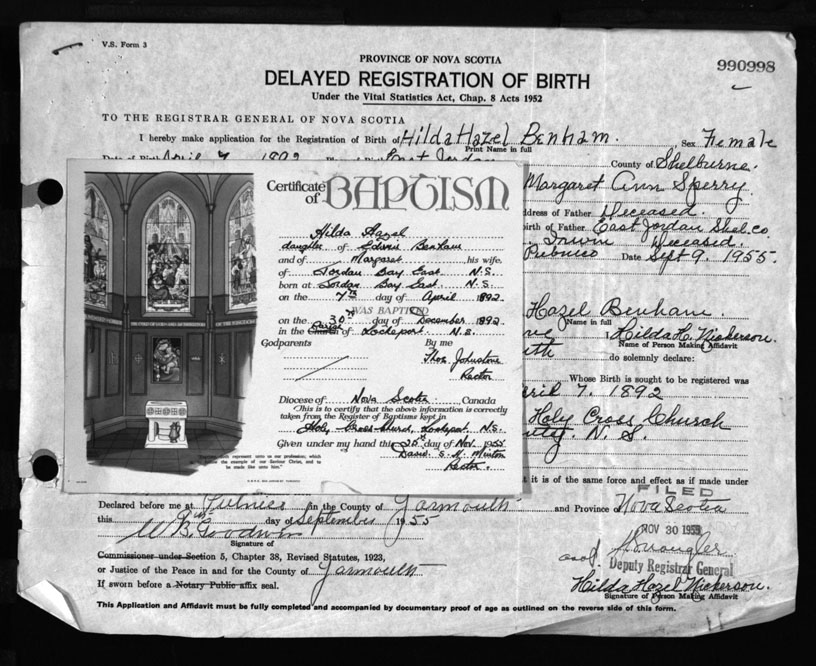 V.S. Form 3
PROVINCE OF NOVA SCOTIA
990998
DELAYED REGISTRATION OF BIRTH
Under the Vital Statistics Act, Chap. 8 Acts 1952
TO THE REGISTRAR GENERAL OF NOVA SCOTIA
I hereby make application for the Registration of Birth of Hilda Hazel Benham. Sex Female
Print Name in full
April 7 1892 East Jordan County of Shelburne.
Margaret Ann Sperry
dress of Father Deceased.
irth of Father East Jordan Shel. Co
Irwin Deceased.
Pubnico Date Sept 9. 1955
Hazel Benham.
Name in full
Hilda H. Nickerson.
Name of Person Making Affidavit
do solemnly declare:
Whose Birth is sought to be registered was
ril 7. 1892
Holy Cross Church
N. S.
t it is of the same force and effect as if made under
Certificate of BAPTISM
Hilda Hazel
daughter of Edwin Benham
and of Margaret his wife,
of Jordan Bay East N.S.
born at Jordan Bay East N.S.
on the 7th day of April 1892.
WAS BAPTIZED
on the 30th day of December 1892
in the Church Parish of Lockeport N.S.
Godparents By me
Thos Johnstone
Rector
Diocese of Nova Scotia, Canada
This is to certify that the above information is correctly
taken from the Register of Baptisms kept in
Holy Cross Church, Lockeport N.S.
Given under my hand this 25th day of Nov. 1955
David S. Minton
Rector.
represent unto us our profession, which
the example of our Saviour Christ, and to
be made like unto him"
FILED
Declared before me at Pubnico in the County of Yarmouth and Province of Nova Scotia
this 9th day of September 1955
NOV 30 1955
W B Goodwin
Signature of
Commissioner under Section 5, Chapter 38, Revised Statutes, 1923,
Deputy Registrar General
or Justice of the Peace in and for the County of Yarmouth
Hilda Hazel Nickerson.
If sworn before a Notary Public affix seal.
Signature of Person Making Affidavit
This Application and Affidavit must be fully completed and accompanied by documentary proof of age as outlined on the reverse side of this form.